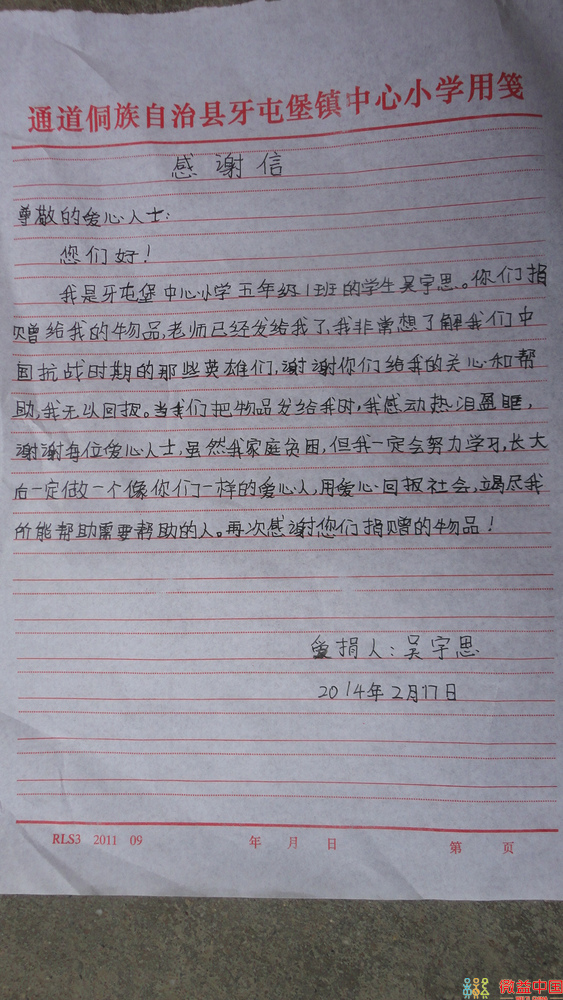 通道侗族自治县牙屯堡镇中心小学用笺
感谢信
尊敬的爱心人士：
您们好！
我是牙屯堡中心小学五年级1班的学生吴宇思。你们捐
赠给我的物品，老师已经发给我了，我非常想了解我们中
国抗战时期的那些英雄们，谢谢你们给我的关心和帮
助，我无以回报。当我们把物品发给我时，我感动热泪盈眶，
谢谢每位爱心人士，虽然我家庭贫困，但我一定会努力学习，长大
后一定做一个像你们一样的爱心人，用爱心回报社会，竭尽我
所能帮助需要帮助的人。再次感谢您们捐赠的物品！
受捐人：吴宇思
2014年2月17日
RLS3 2011 09 年 月 日 第 页
微益中国